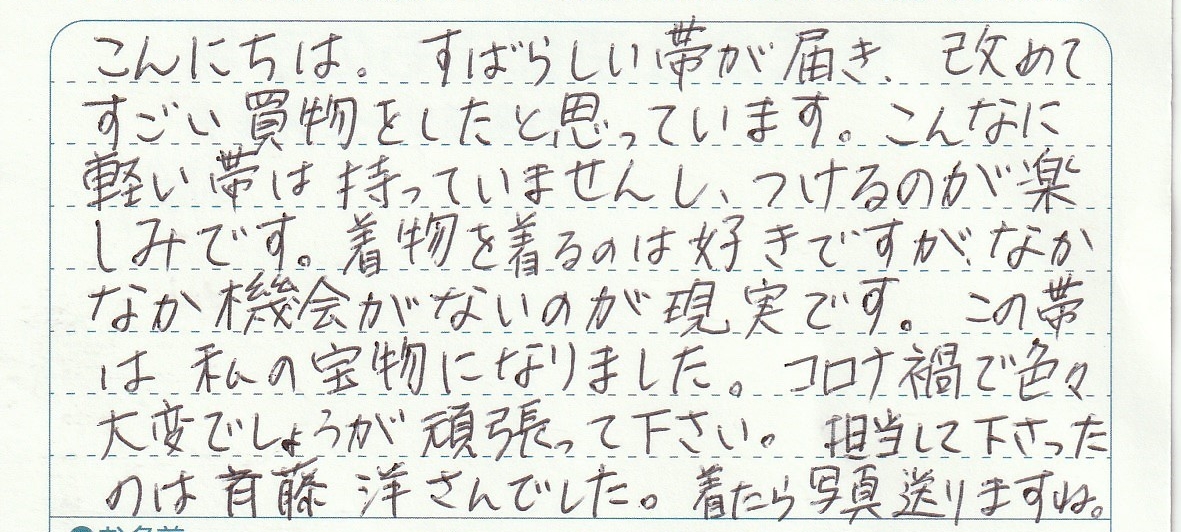 こんにちは。 すばらしい帯が届き、改めて
すごい買物をしたと思っています。こんなに
軽い帯は持っていませんし、つけるのが楽
しみです。着物を着るのは好きですが、なか
なか機会がないのが現実です。この帯
は私の宝物になりました。コロナ禍で色々
大変でしょうが頑張って下さい。 担当して下さった
のは首藤 洋さんでした。着たら写真送りますね。